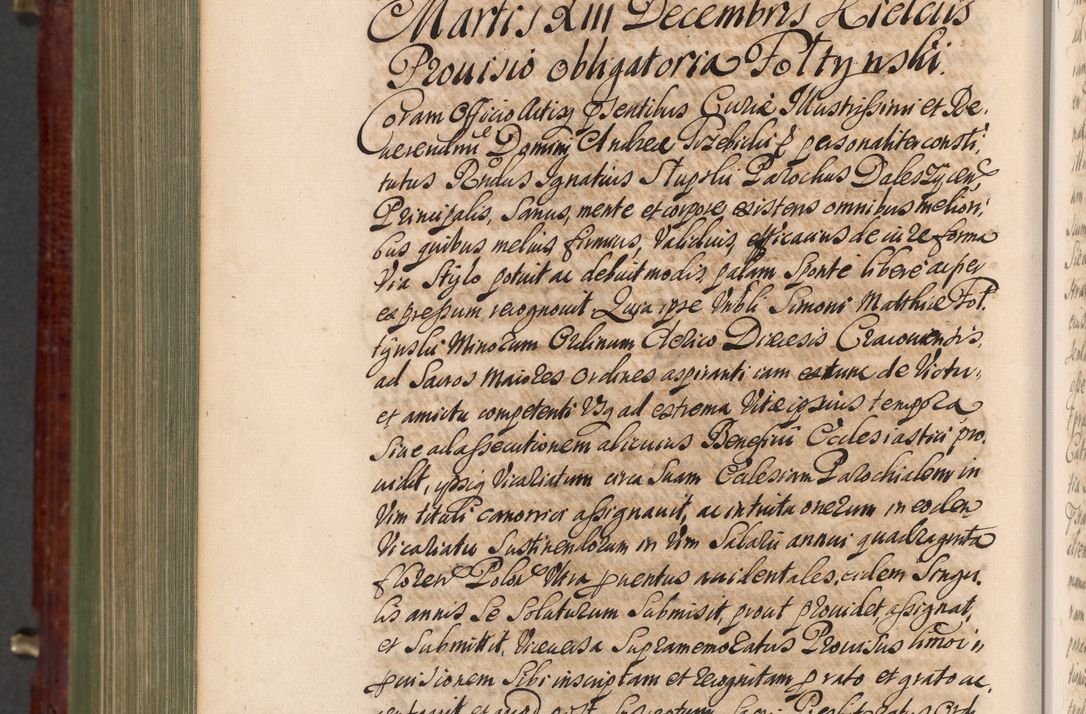 Martis XIII Decembris Kielciis
Prouisio obligatoria Foltynski.
Coram Officio Actisq pntibus Curiæ Illustrissimi et Re,
uerendmi Domini Andreæ Trzebicki personaliter consti,
tutus Rndus Ignatius Slupski Parochus Daleszycen
Principalis, sanus, mente et corpore existens omnibus meliori,
bus quibus melius, firmius, validius, efficacius de iure forma
via stylo potuit ac debuit modis palam sponte libere ac per
expressum recognouit Quia ipse Vnbli Simoni Matthiæ Fol
tynski Minorum Ordinum Clerico Diæcesis Cracouiensis,
ad Sacros Maiores Ordines aspiranti iam ex tunc de Victu
et amictu competenti Vsq ad extrema Vitæ ipsius tempora
siue ad assecutionem alicuius Beneficii Ecclesiastici pro,
uidit, ipsiq Vicariatum circa suam Ecclesiam Parochialem in
Vim tituli canonici assignauit, ac intuitu onerum in eodem
Vicariatu sustinendorum in Vim Salarii annui quadraginta
floren Polon Vltra puentus accidentales, eidem singu,
lis annis se soluturum submisit, prout prouidet, assignat,
et submittit, Viceuersa supramemoratus Prouisus hmoi
puisionem sibi inscriptam et recognitam p rato et grato ac,